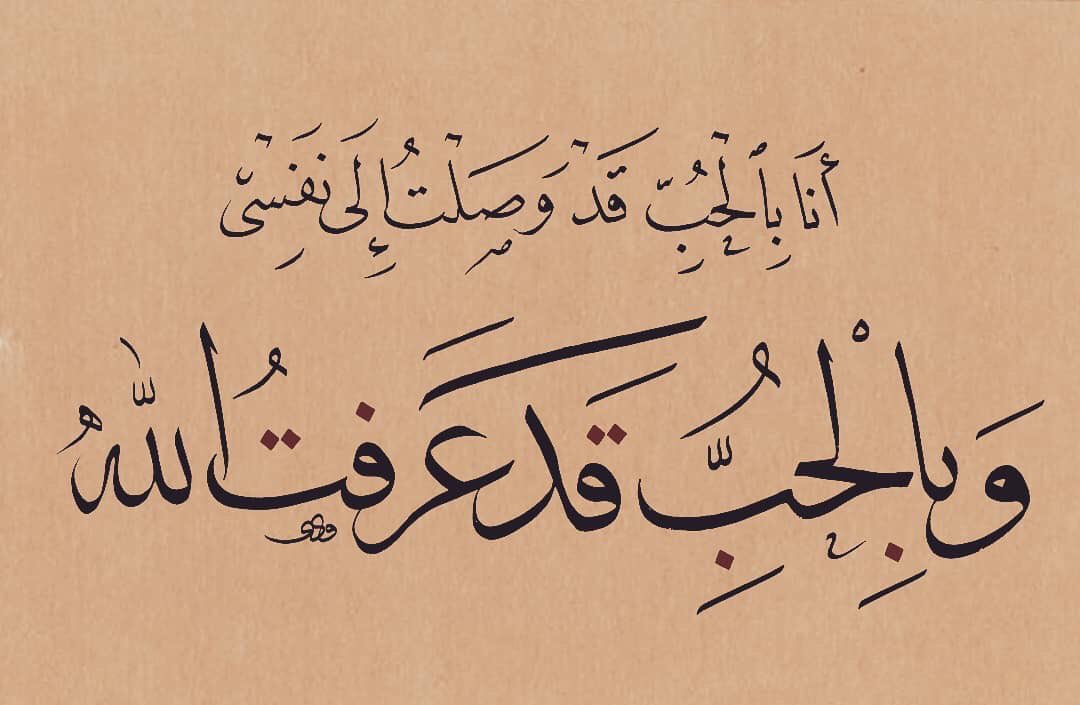 أَنَا بِالْحُبِّ قَدْ وَصَلْتُ إِلَى نَفْسِيْ
وَبِالْحُبِّ قَدْ عَرَفْتُ اللّٰهَ